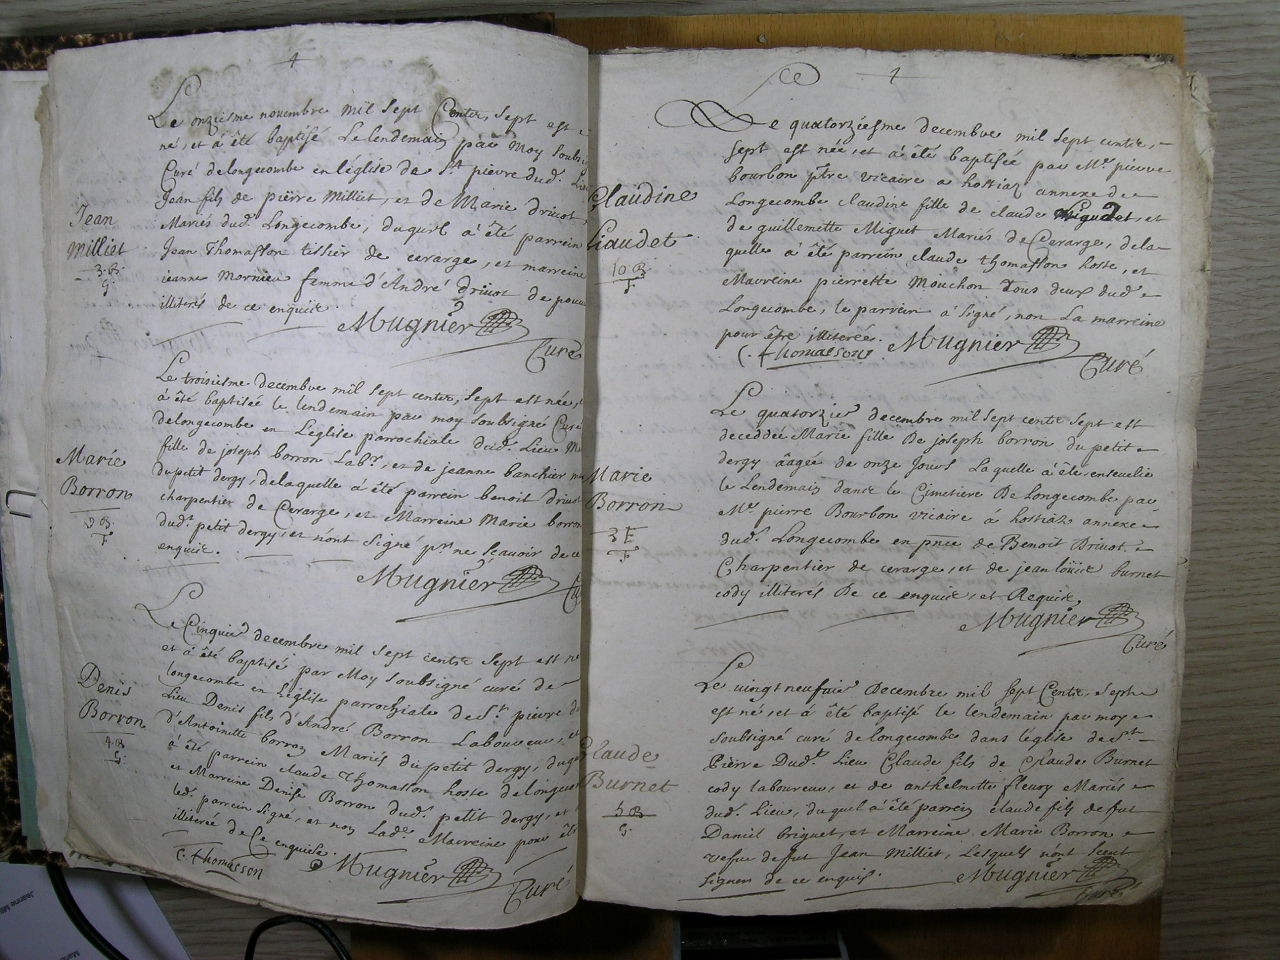 4
Le onziesme novembre mil sept Cents, sept est
né, et a été baptisé Le lendemain par moy soubs
Curé delongecombe en léglise de St pierre dud. Lieu
Jean fils de pierre Milliet, et de Marie drivot
Mariés dud. Longecombe, duquel a été parrein
Jean Thomasson tissier de cerarge, et marreine
jeanne mornieu femme d'André drivot de pour
illiterés de ce enquis
Mugnier
Curé
Jean
Milliet
3. B.
G.
Le troisiesme decembre mil sept cents, sept est née,
a été baptisée le lendemain par moy soubsigné Curé
delongecombe en Léglise parrochiale dud. Lieu
fille de joseph borron Labr, et de jeanne banchier
du petit dergy, delaquelle a été parrein benoit drivot
charpentier de Cerarge, et Marreine Marie borron
dud. petit dergy, et nónt signé pr ne scavoir de ce
enquis.
Mugnier
Marie
Borron
9 B.
F.
Le Cinquie decembre mil sept cents sept est né
et a été baptisé par Moy soubsigné curé de
longecombe en Léglise parrochiale de St. pierre
Lieu Denis fils d'André Borron Laboureur, et
d'Antoinette borron Mariés du petit dergy, duq
a été parrein claude Thomasson hoste de longe
et Marreine Denise Borron dud. petit dergy, et
led. parrein signé, et non Lade. Marreine pour
illiterée de Ce enquise.
C. Thomasson
Mugnier
Curé
Denis
Borron
4. B
G.
4
Le quatorziesme decembre mil sept cents,
sept est née, et a été baptisée par Mr. pierre
bourbon ptre vicaire a hostiaz annexe de
Longecombe claudine fille de claude et
de guillemette Miguet Mariés de Cerarge, dela
quelle a été parrein claude thomasson hoste, et
Marreine pierrette Mouchon tous deux dud.
Longecombe, le parrein a signé, non La marreine
pour être illiterée.
C. Thomasson
Mugnier
Curé
Claudine
Gaudet
10 B
F.
Le quatorzie decembre mil sept cents sept est
deceddée Marie fille De joseph borron du petit
dergy âagée de onze jours Laquelle a été ensevelie
le Lendemain dans le Cimetiere De Longecombe par
Mr. pierre Bourbon vicaire á hostiaz annexe
dud. Longecombe en pnce de Benoit Drivot
Charpentier de cerarge, et de jean loüis burnet
cody illiterés De ce enquis, et Requis,
Mugnier
Curé
Marie
Borron
3 E
F.
Le vingtneufuie Decembre mil sept Cents sept
est né, et a été baptisé le lendemain par moy
soubsigné curé de longecombe dans léglise de St
Pierre Dud. Lieu Claude fils de claude Burnet
cody laboureur, et de anthelmette fleury Mariés
dud. Lieu, duquel a été parrein claude fils de fut
Daniel briguet, et Marreine Marie Borron
vefve de fut Jean Milliet, Lesquels nónt sceut
signer de ce enquis.
Mugnier
Curé
Claude
Burnet
5 B
G.